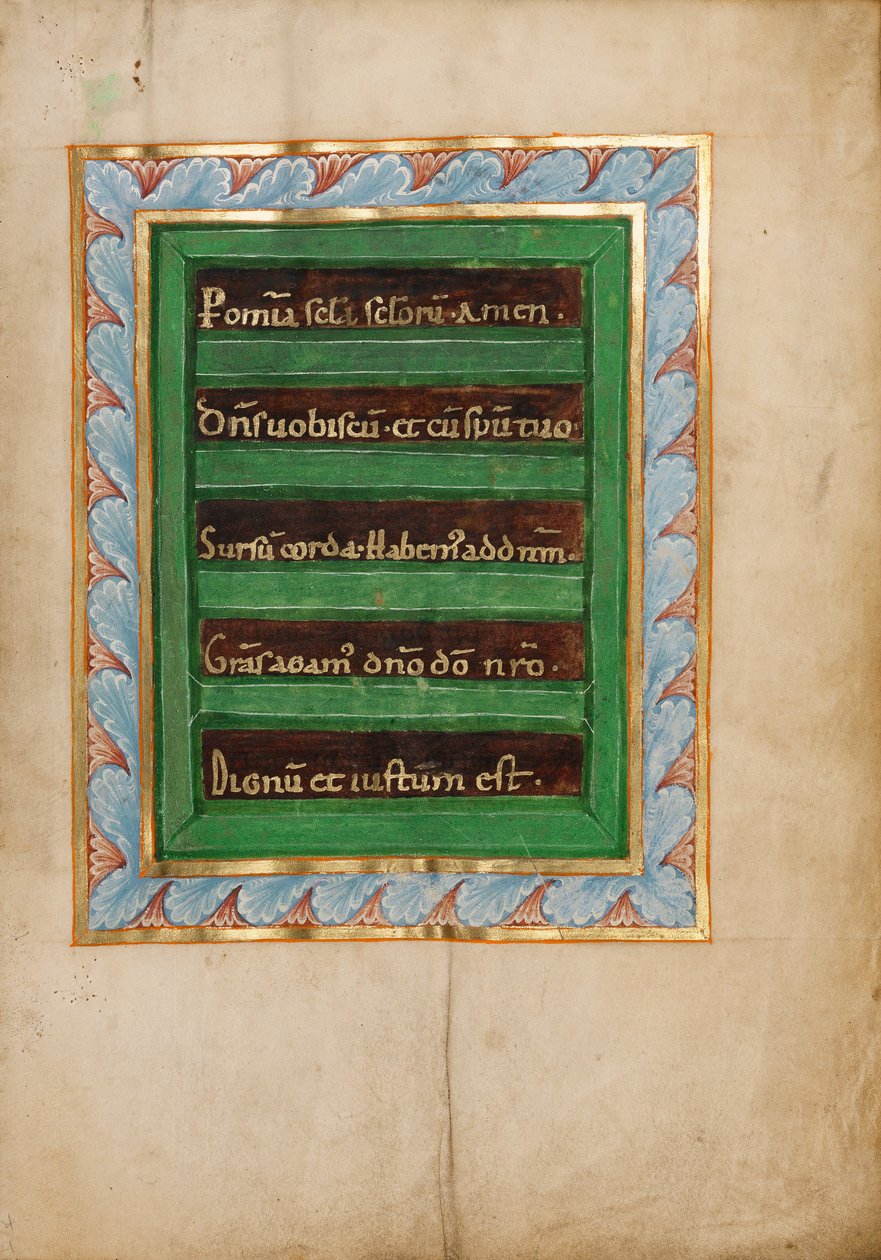 Pomīa scla sclorū · Amen ·
Dn̄s uobiscū · et cū spū tuo ·
Sursū corda · Habemꝰ ad dnm̄ ·
Gra̅s agamꝰ dn̄o dō nr̄o ·
Dignū et iustūm est ·